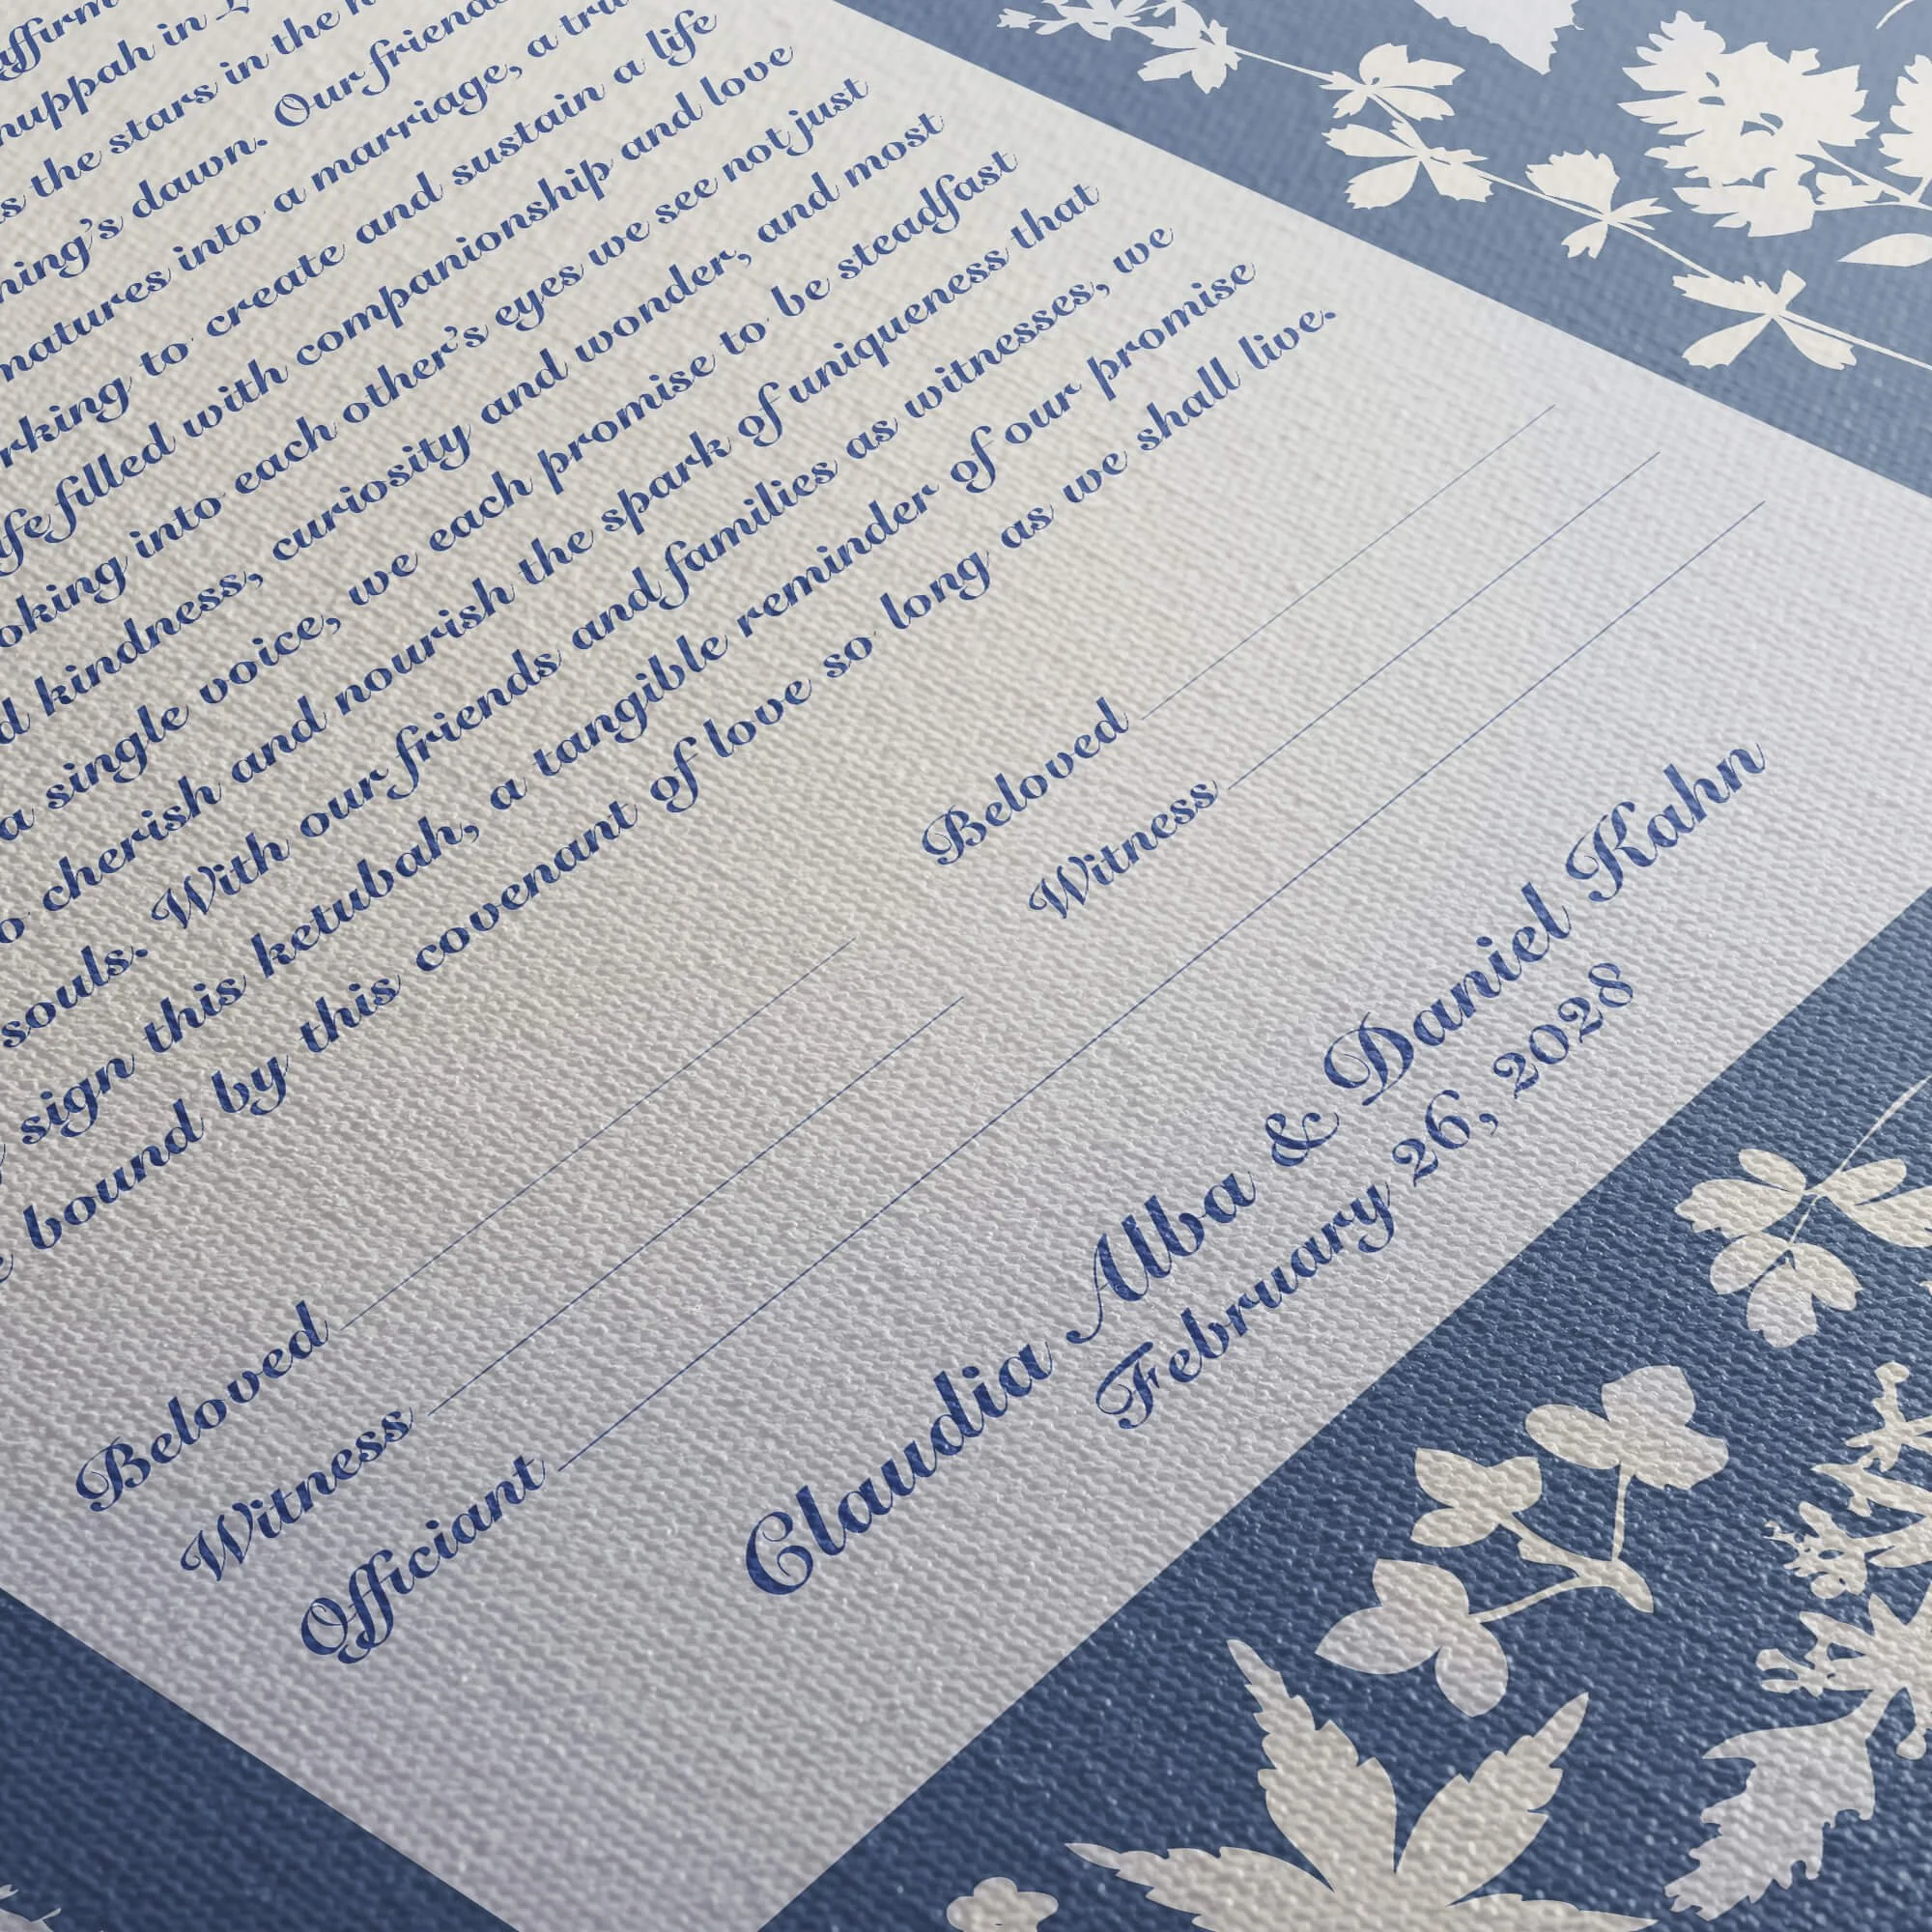 affirm
huppah in
s the stars in the
ning's dawn. Our friend
natures into a marriage, a tru
rking to create and sustain a life
ife filled with companionship and love
oking into each other's eyes we see not just
d kindness, curiosity and wonder, and most
a single voice, we each promise to be steadfast
o cherish and nourish the spark of uniqueness that
souls. With our friends and families as witnesses, we
sign this ketubah, a tangible reminder of our promise
bound by this covenant of love so long as we shall live.
Beloved Beloved
Witness Witness
Officiant
Claudia Alba & Daniel Kahn
February 26, 2028